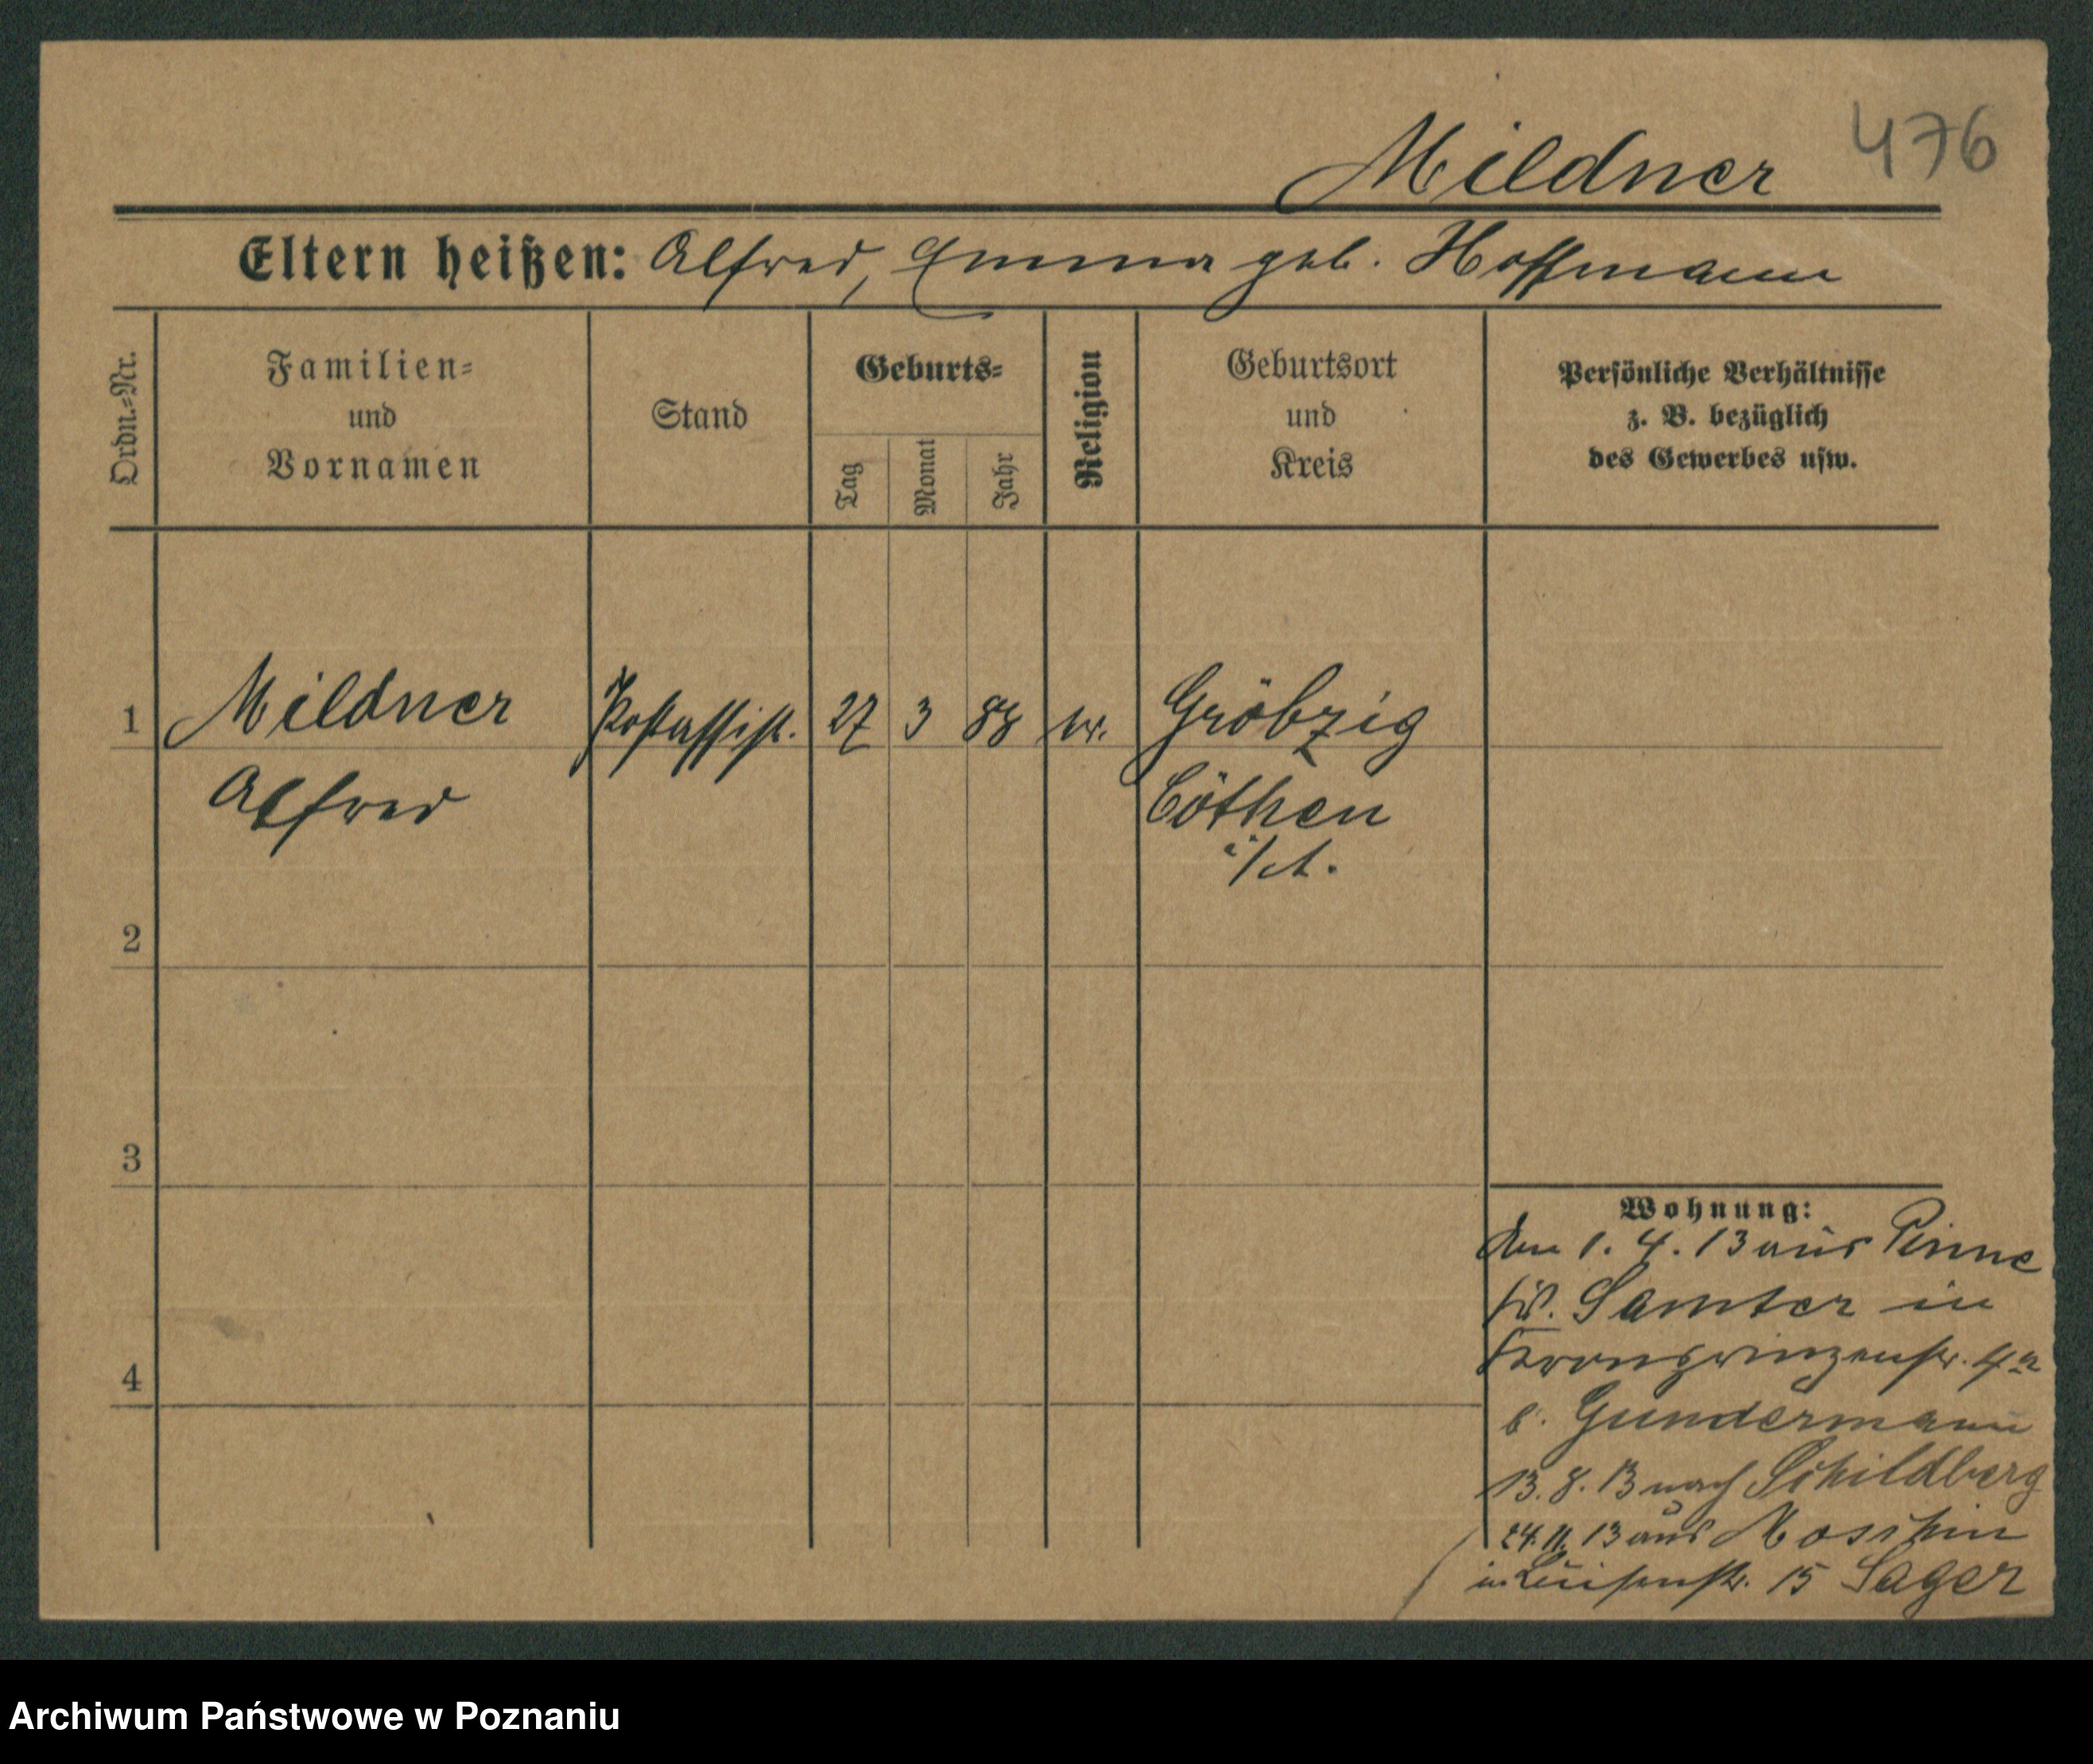 476
Mildner
Eltern heißen: Alfred, Emma geb. Hoffmann
Ordn.=Nr.
Familien=
und
Vornamen
Stand
Geburts=
Tag
Monat
Jahr
Religion
Geburtsort
und
Kreis
Persönliche Verhältnisse
z. B. bezüglich
des Gewerbes usw.
1 Mildner Postassist. 27 3 88 ev. Gröbzig
Alfred Cöthen
i/A.
2
3
4
Wohnung:
Am 1. 4. 13 aus Pinne
Kr. Samter in
Kronprinzenstr. 4a
b. Gundermann
13. 8. 13 nach Schildberg
24. 11. 13 aus Moschin
in Luisenstr. 15 Sager
Archiwum Państwowe w Poznaniu